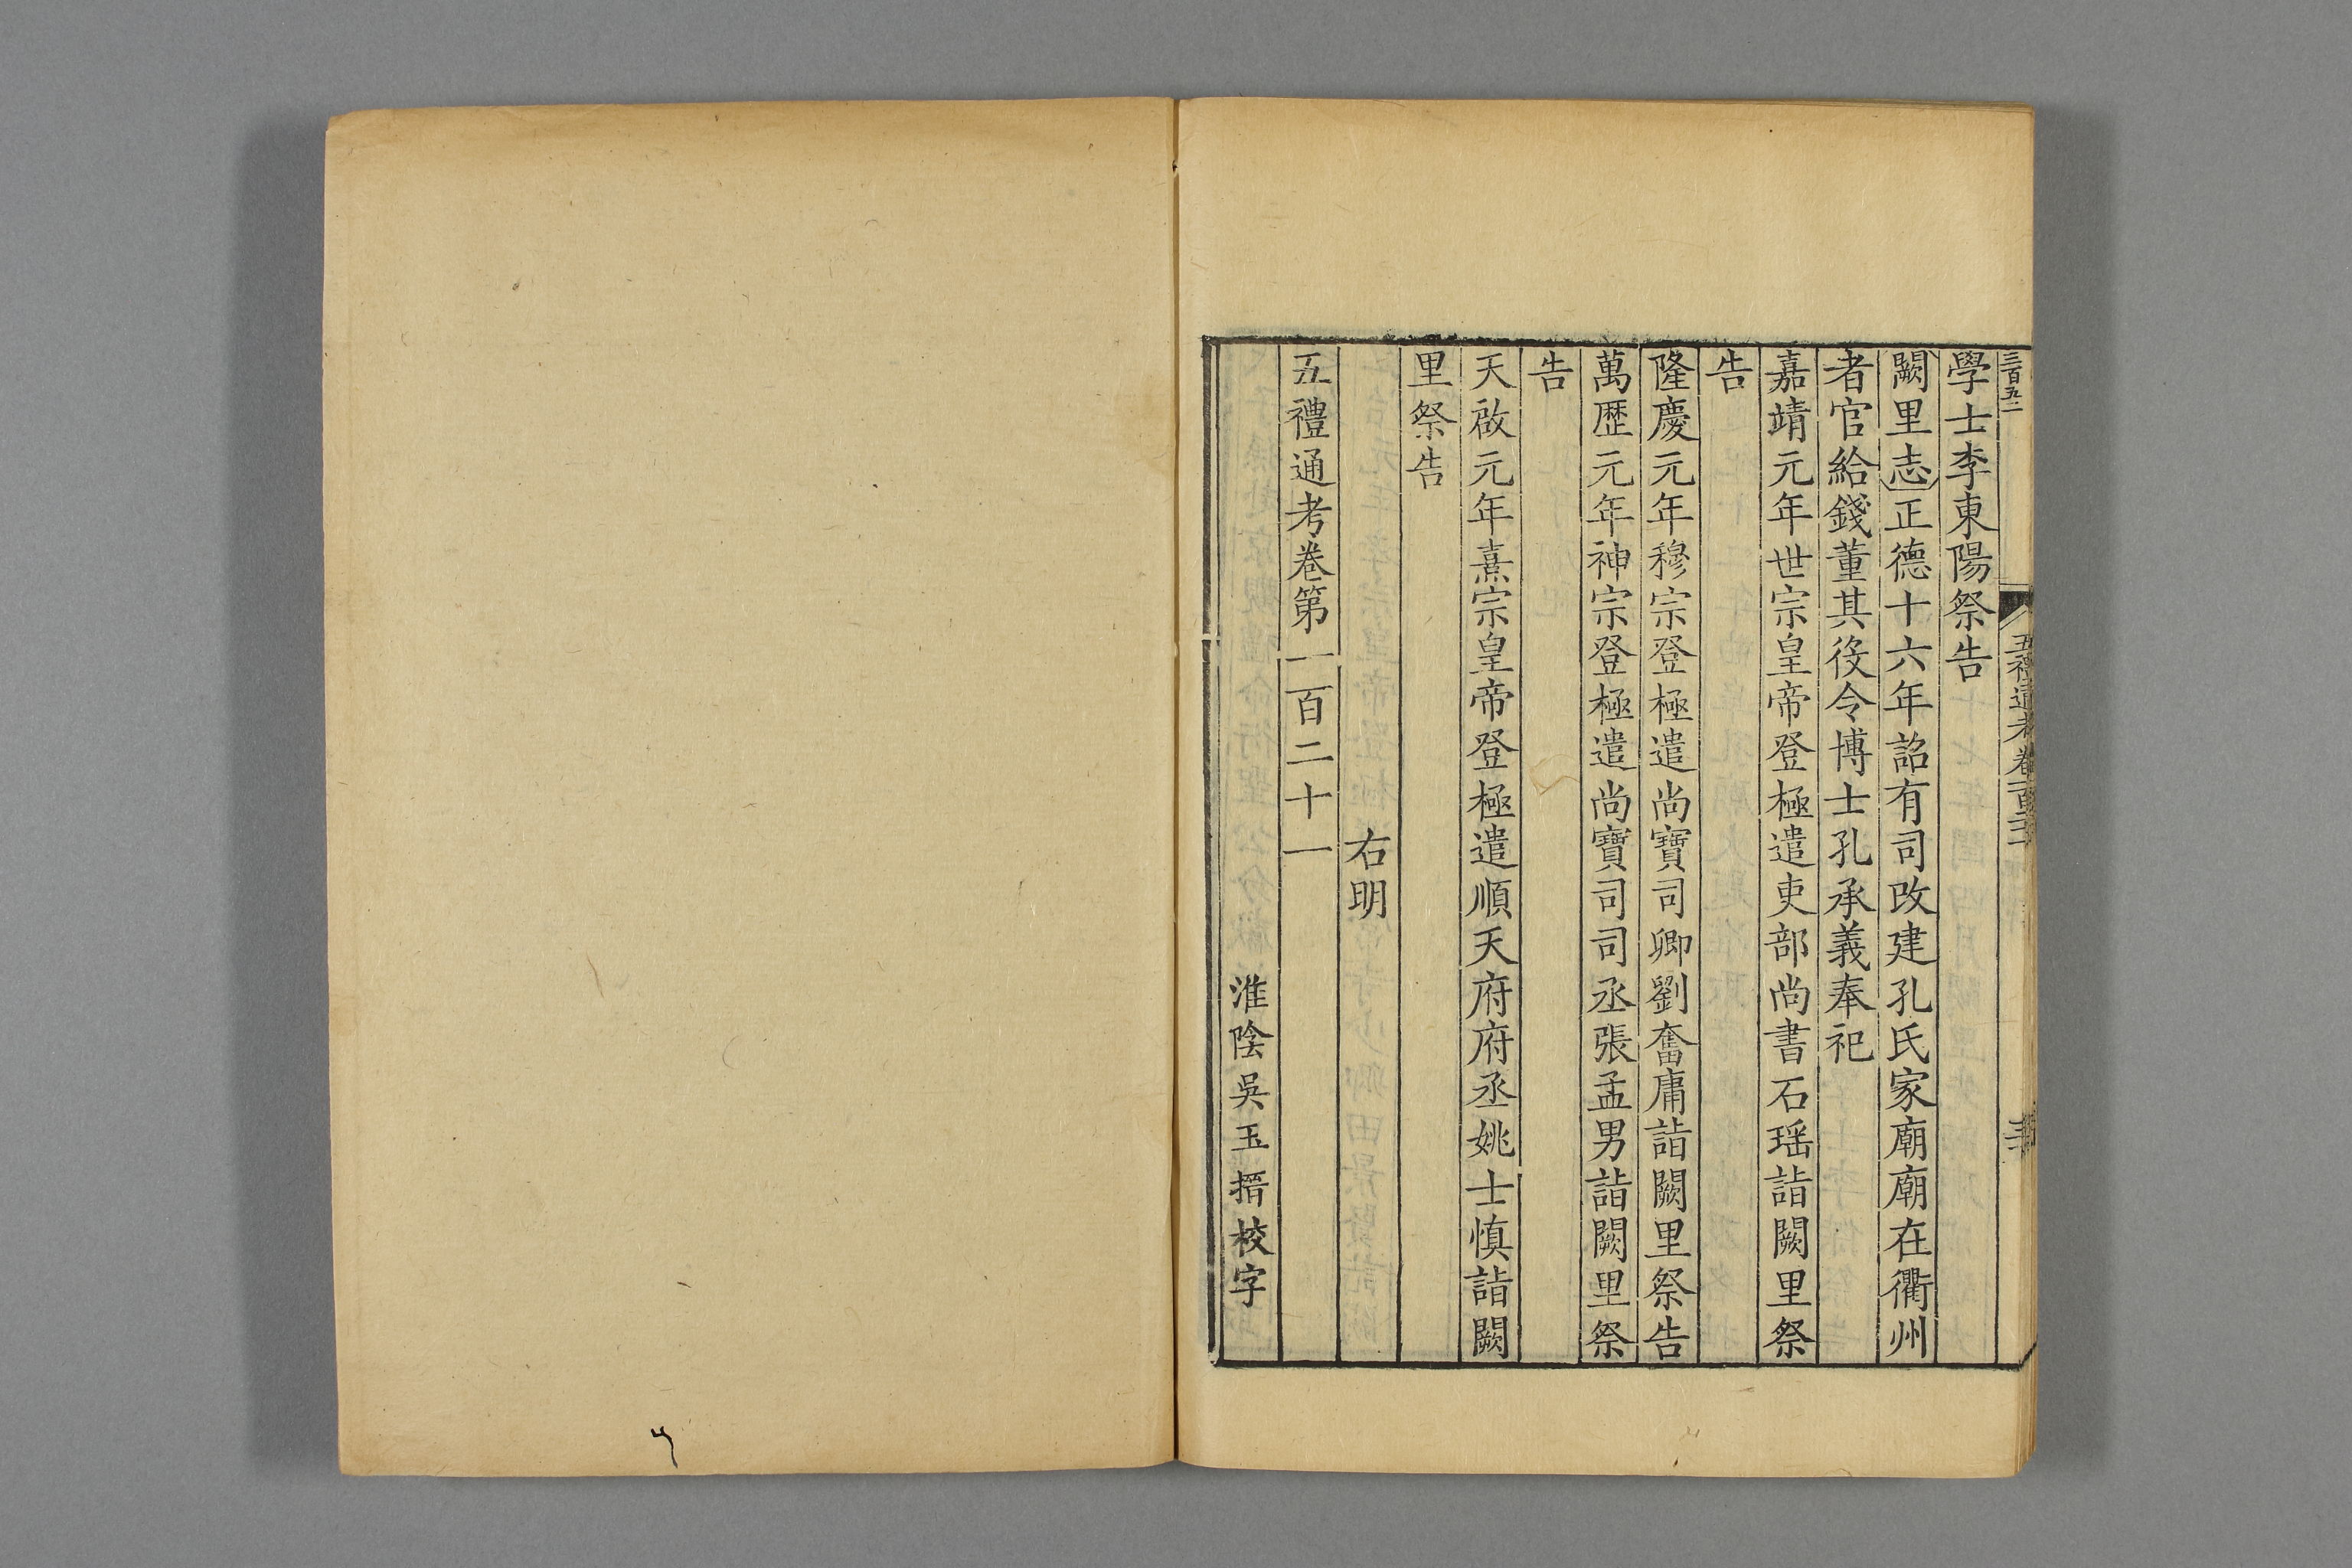 三百五二
五禮通考卷一百二十一
學士李東陽祭告
闕里志正德十六年詔有司改建孔氏家廟廟在衢州
者官給錢董其役令博士孔承義奉祀
嘉靖元年世宗皇帝登極遣吏部尚書石瑶詣闕里祭
告
隆慶元年穆宗登極遣尚寶司卿劉奮庸詣闕里祭告
萬歷元年神宗登極遣尚寶司司丞張孟男詣闕里祭
告
天啟元年熹宗皇帝登極遣順天府府丞姚士慎詣闕
里祭告
右明
五禮通考卷第一百二十一
淮陰吳玉搢校字